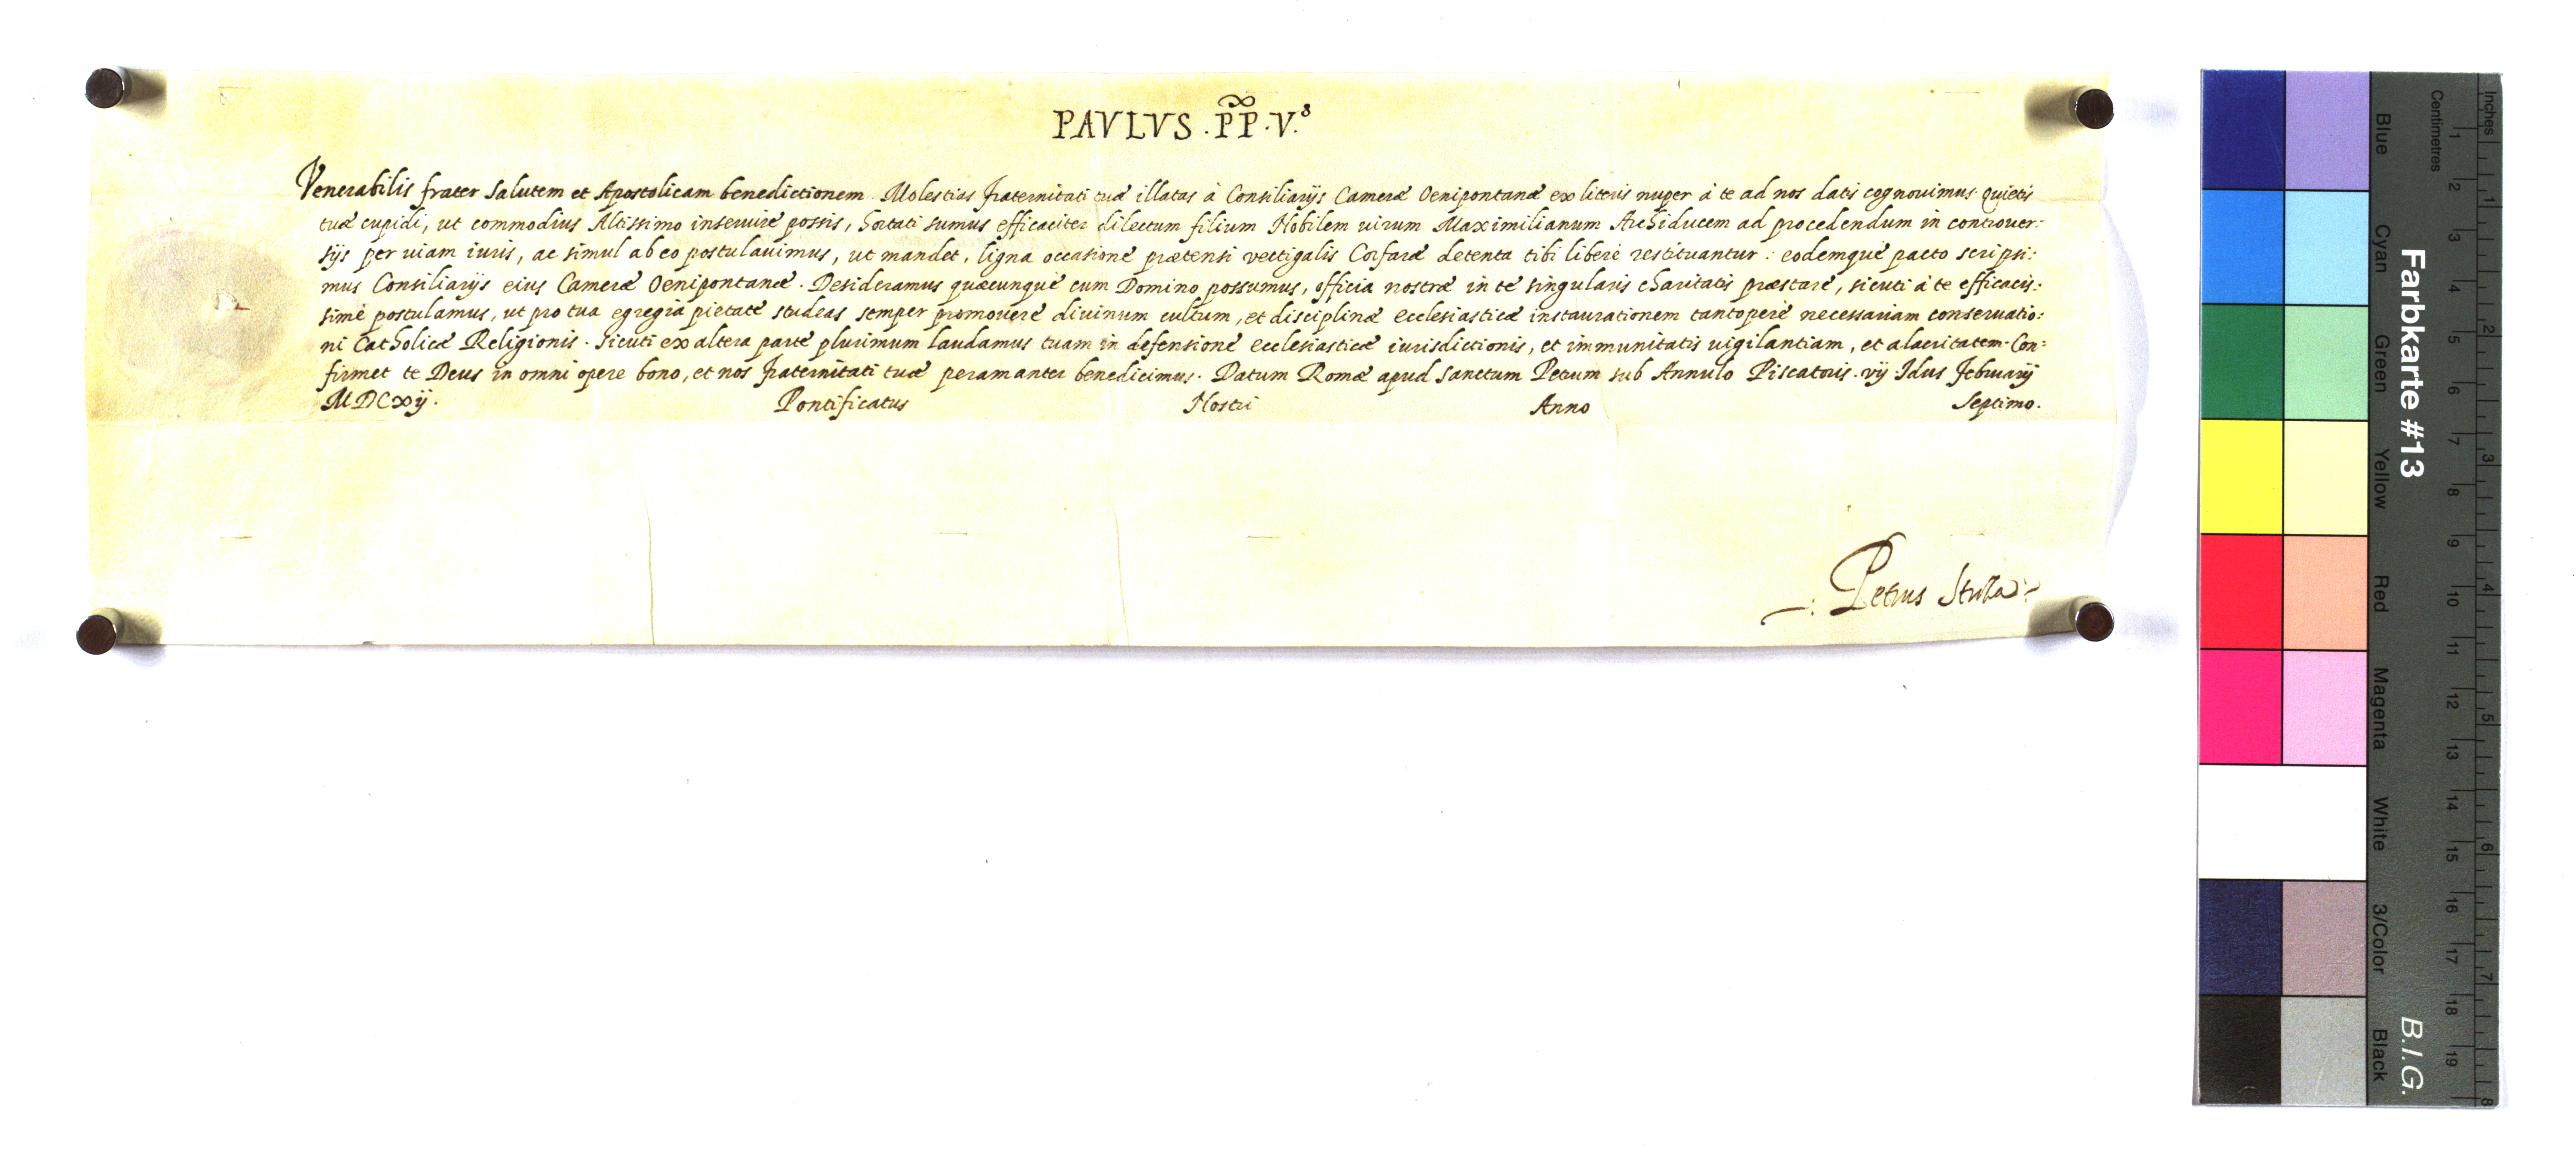 PAVLVS . PP . V.s
Venerabilis frater salutem et Apostolicam benedictionem. Molestias fraternitati tuæ illatas à Consiliarijs Cameræ Oenipontanæ ex literis nuper à te ad nos datis cognouimus. Quietis
tuæ cupidi, ut commodius Altissimo inseruire possis, hortati sumus efficaciter dilectum filium Nobilem uirum Maximilianum Archiducem ad procedendum in controuer:
sijs per uiam iuris, ac simul ab eo postulauimus, ut mandet, ligna occasione prætensi vectigalis Corfaræ detenta tibi libere restituantur: eodemque pacto scripsi:
mus Consiliarijs eius Cameræ Oenipontanæ. Desideramus quæcunque cum Domino possumus, officia nostræ in te singularis charitatis præstare, sicuti à te efficacis:
sime postulamus, ut pro tua egregia pietate studeas semper promouere diuinum cultum, et disciplinæ ecclesiasticæ instaurationem tantopere necessariam conseruatio:
ni Catholicæ Religionis. Sicuti ex altera parte plurimum laudamus tuam in defensione ecclesiasticæ iurisdictionis, et immunitatis uigilantiam, et alacritatem. Con:
firmet te Deus in omni opere bono, et nos fraternitati tuæ peramanter benedicimus. Datum Romæ apud Sanctum Petrum sub Annulo Piscatoris. vij Idus Februarij
MDCxij. Pontificatus Nostri Anno Septimo.
Petrus Stroza
Farbkarte #13 B.I.G.
Blue Cyan Green Yellow Red Magenta White 3/Color Black
Centimetres 1 2 3 4 5 6 7 8 9 10 11 12 13 14 15 16 17 18 19
Inches 1 2 3 4 5 6 7 8